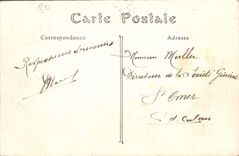 Carte Postale
Correspondance
Adresse
Respectueux Souvenirs
Monsieur Muller
Directeur de la Société Générale
St Omer
P. d Calais